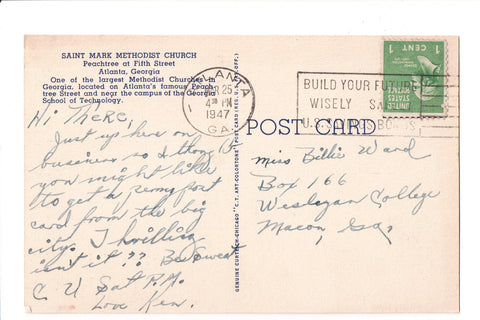 SAINT MARK METHODIST CHURCH
Peachtree at Fifth Street
Atlanta, Georgia
One of the largest Methodist Churches in
Georgia, located on Atlanta's famous Peach-
tree Street and near the campus of the Georgia
School of Technology.
Hi There,
Just up here on
business so I thought
you might like
to get a penny post
card from the big
city. Thrilling
isn't it?? Be sweet
C U Sat P.M.
Love Ken.
GENUINE CURTEICH-CHICAGO "C.T. ART-COLORTONE" POST CARD (REG. U.S. PAT. OFF.)
ATLANTA
25
4 PM
1947
GA.
BUILD YOUR FUTURE
WISELY SA
U.S. BONDS
1 CENT 1
UNITED STATES POSTAGE
POST CARD
Miss Billie Ward
Box 166
Wesleyan College
Macon, Ga,